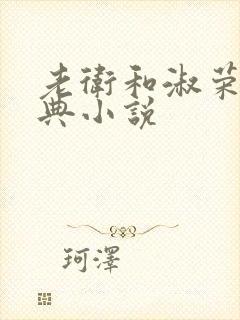 老衛和淑荣
典小説
珂澤